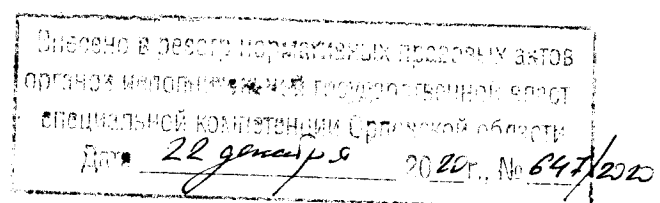 Внесено в реестр нормативных правовых актов
органов исполнительной государственной власт
специальной компетенции Орловской области
Дата 22 декабря 2020г., № 647/2020